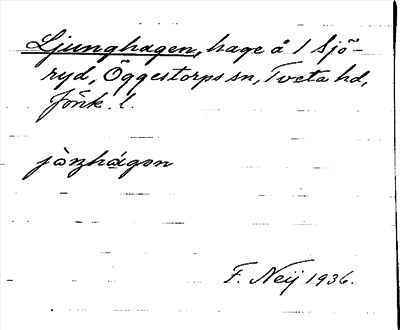 Ljunghagen, hage å 1 Sjö-
ryd, Öggestorps sn, Tveta hd,
Jönk. l.
jònhágən
F. Neij 1936.